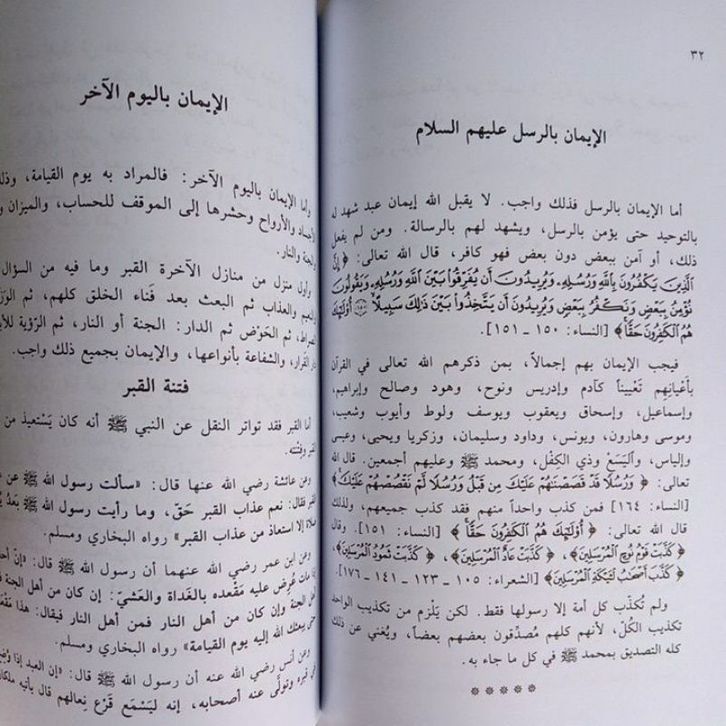 ٣٢
الإيمان بالرسل عليهم السلام
أما الإيمان بالرسل فذلك واجب. لا يقبل الله إيمان عبد شهد له
بالتوحيد حتى يؤمن بالرسل، ويشهد لهم بالرسالة. ومن لم يفعل
ذلك، أو آمن ببعض دون بعض فهو كافر، قال الله تعالى: ﴿إِنَّ
الَّذِينَ يَكْفُرُونَ بِاللَّهِ وَرُسُلِهِ، وَيُرِيدُونَ أَن يُفَرِّقُوا بَيْنَ اللَّهِ وَرُسُلِهِ، وَيَقُولُونَ
نُؤْمِنُ بِبَعْضٍ وَنَكْفُرُ بِبَعْضٍ وَيُرِيدُونَ أَن يَتَّخِذُوا بَيْنَ ذَلِكَ سَبِيلًا ۝ أُوْلَئِكَ
هُمُ الْكَافِرُونَ حَقًّا﴾ [النساء: ١٥٠ ـ ١٥١].
فيجب الإيمان بهم إجمالاً، بمن ذكرهم الله تعالى في القرآن
بأعيانهم تَعْييناً كآدم وإدريس ونوح، وهود وصالح وإبراهيم،
وإسماعيل، وإسحاق ويعقوب ويوسف ولوط وأيوب وشعيب،
وموسى وهارون، ويونس، وداود وسليمان، وزكريا ويحيى، وعيسى
وإلياس، وأَليَسَعْ وذي الكِفْل، ومحمد ﷺ وعليهم أجمعين. قال الله
تعالى: ﴿وَرُسُلًا قَدْ قَصَصْنَاهُمْ عَلَيْكَ مِن قَبْلُ وَرُسُلًا لَّمْ نَقْصُصْهُمْ عَلَيْكَ﴾
[النساء: ١٦٤] فمن كذب واحداً منهم فقد كذب جميعهم، ولذلك
قال الله تعالى: ﴿أُوْلَئِكَ هُمُ الْكَافِرُونَ حَقًّا﴾ [النساء: ١٥١]. وقال
﴿كَذَّبَتْ قَوْمُ نُوحٍ الْمُرْسَلِينَ﴾، ﴿كَذَّبَتْ عَادٌ الْمُرْسَلِينَ﴾، ﴿كَذَّبَتْ ثَمُودُ الْمُرْسَلِينَ﴾،
﴿كَذَّبَ أَصْحَابُ لْئَيْكَةِ الْمُرْسَلِينَ﴾ [الشعراء: ١٠٥ ـ ١٢٣ ـ ١٤١ ـ ١٧٦].
ولم تُكذّب كل أمة إلا رسولها فقط. لكن يَلْزم من تكذيب الواحد
تكذيب الكُلّ، لأنهم كلهم مُصدِّقون بعضهم بعضاً، ويُغني عن ذلك
كله التصديق بمحمد ﷺ في كل ما جاء به.
الإيمان باليوم الآخر
وأما الإيمان باليوم الآخر: فالمراد به يوم القيامة،
والأرواح وحشرها إلى الموقف للحساب، والميزان
والجنة والنار.
وأول منزل من منازل الآخرة القبر وما فيه من السؤال
والعذاب ثم البعث بعد فَناء الخلق كلهم، ثم
ثم الحَوْض ثم الدار: الجنة أو النار، ثم الرّؤية
القرار، والشفاعة بأنواعها، والإيمان بجميع ذلك واجب.
فتنة القبر
أما القبر فقد تواتر النقل عن النبي ﷺ أنه كان يَسْتعيذ من
القبر وفِتْنته.
وعن عائشة رضي الله عنها قال: «سألت رسول الله ﷺ عن
القبر فقال: نعم عذاب القبر حَقّ، وما رأيت رسول الله ﷺ بَعدُ
صلاة إلا استعاذ من عذاب القبر» رواه البخاري ومسلم.
وعن ابن عمر رضي الله عنهما أن رسول الله ﷺ قال:
مات عُرِض عليه مَقْعده بالغَداة والعَشيّ: إن كان من أهل الجنة
أهل الجنة وإن كان من أهل النار فمن أهل النار فيقال: هذا
حتى يبعثك الله إليه يوم القيامة» رواه البخاري ومسلم.
وعن أنس رضي الله عنه أن رسول الله ﷺ قال: «إن العبد إذا
في قبره وتولّى عنه أصحابه، إنه ليَسْمَع قَرْع نِعالهم قال يأتيه